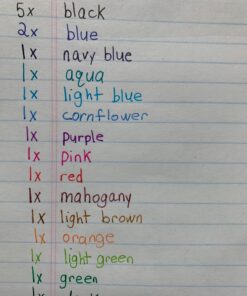 5x black
2x blue
1x navy blue
1x aqua
1x light blue
1x cornflower
1x purple
1x pink
1x red
1x mahogany
1x light brown
1x orange
1x light green
1x green
1x